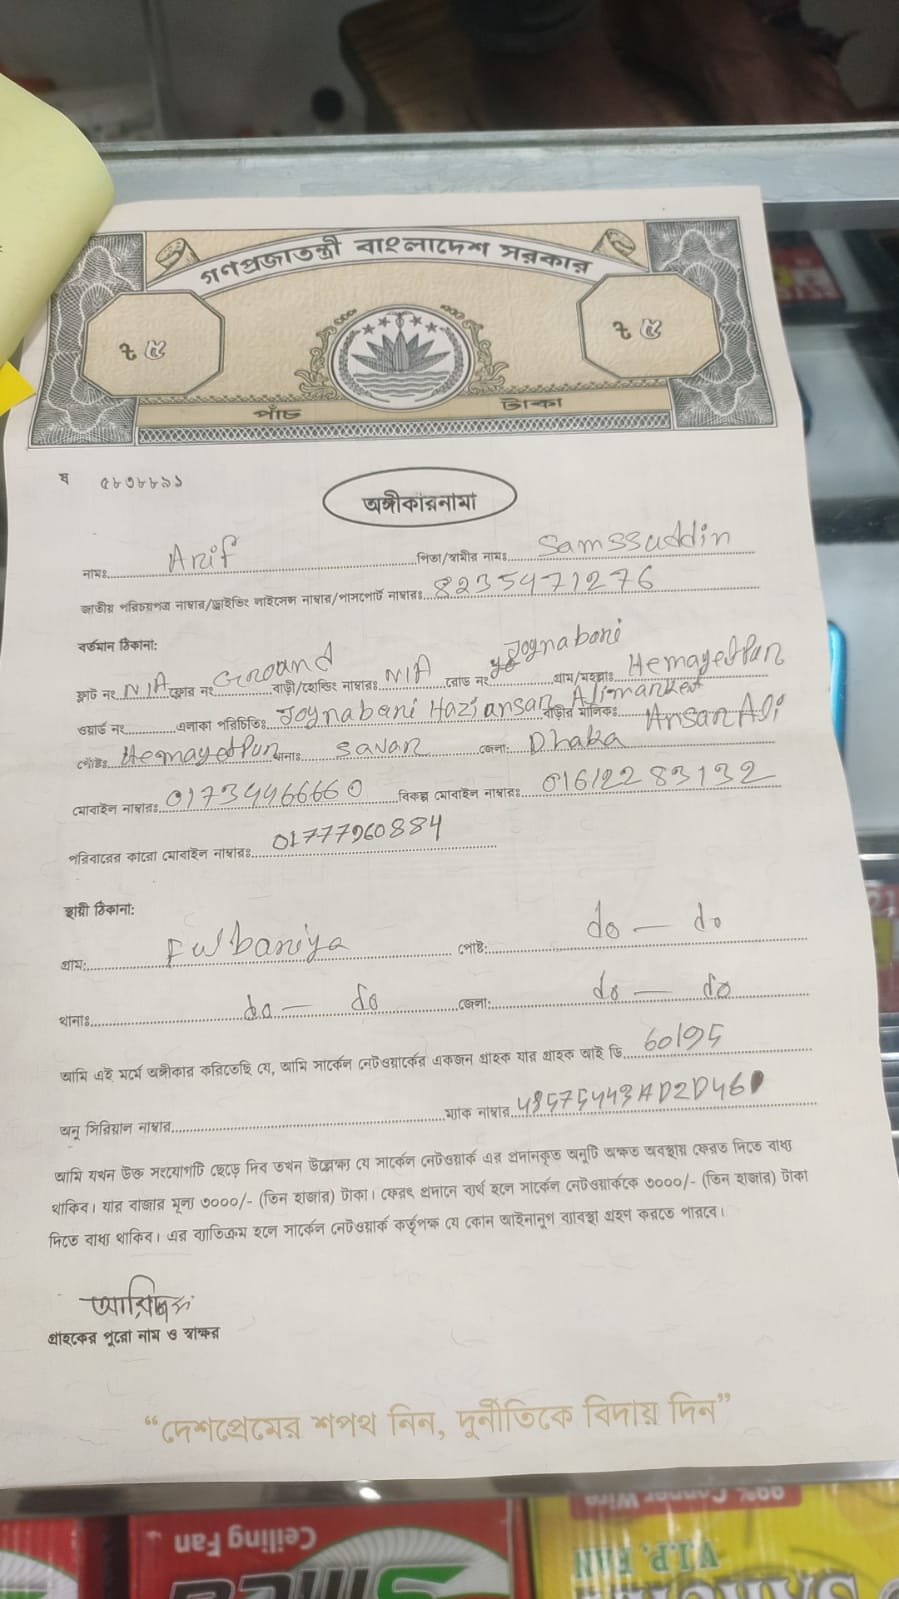 গণপ্রজাতন্ত্রী বাংলাদেশ সরকার
৳ ৫ ৳ ৫
পাঁচ টাকা
ষ ৫৮৩৮৮৯১
অঙ্গীকারনামা
নামঃ Arif পিতা/স্বামীর নামঃ Samssuddin
জাতীয় পরিচয়পত্র নাম্বার/ড্রাইভিং লাইসেন্স নাম্বার/পাসপোর্ট নাম্বারঃ 8235471276
বর্তমান ঠিকানা:
ফ্লাট নং N/A ফ্লোর নং Ground বাড়ী/হোল্ডিং নাম্বারঃ N/A রোড নং Joynabari গ্রাম/মহল্লাঃ Hemayetpur
ওয়ার্ড নং এলাকা পরিচিতিঃ Joynabari Hazi ansar Ali market বাড়ীর মালিকঃ Ansar Ali
পোষ্টঃ Hemayetpur থানাঃ Savar জেলা: Dhaka
মোবাইল নাম্বারঃ 01734466660 বিকল্প মোবাইল নাম্বারঃ 01612283132
পরিবারের কারো মোবাইল নাম্বারঃ 01777960884
স্থায়ী ঠিকানা:
গ্রাম: Fulbaniya পোষ্ট: do — do
থানাঃ do — do জেলা: do — do
আমি এই মর্মে অঙ্গীকার করিতেছি যে, আমি সার্কেল নেটওয়ার্কের একজন গ্রাহক যার গ্রাহক আই ডি 60195
অনু সিরিয়াল নাম্বার ম্যাক নাম্বার 48575443AD2D46
আমি যখন উক্ত সংযোগটি ছেড়ে দিব তখন উল্লেখ্য যে সার্কেল নেটওয়ার্ক এর প্রদানকৃত অনুটি অক্ষত অবস্থায় ফেরত দিতে বাধ্য
থাকিব। যার বাজার মূল্য ৩০০০/- (তিন হাজার) টাকা। ফেরৎ প্রদানে ব্যর্থ হলে সার্কেল নেটওয়ার্ককে ৩০০০/- (তিন হাজার) টাকা
দিতে বাধ্য থাকিব। এর ব্যতিক্রম হলে সার্কেল নেটওয়ার্ক কর্তৃপক্ষ যে কোন আইনানুগ ব্যাবস্থা গ্রহণ করতে পারবে।
গ্রাহকের পুরো নাম ও স্বাক্ষর
“দেশপ্রেমের শপথ নিন, দুর্নীতিকে বিদায় দিন”
Ceiling Fan
99% Copper Wire
V.I.P. FAN